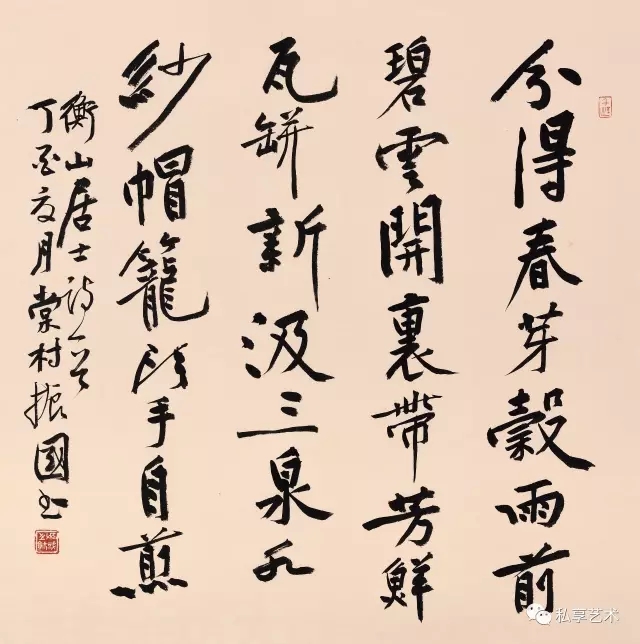 分得春芽穀雨前
碧雲開裏帶芳鮮
瓦缾新汲三泉水
紗帽籠頭手自煎
衡山居士詩一首
丁酉夏月棠村振國書
私享艺术